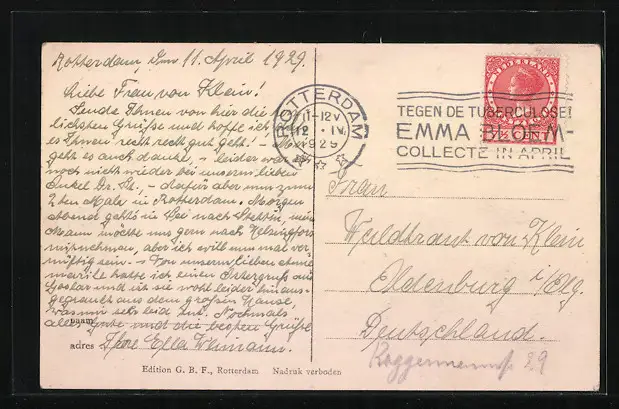 Rotterdam, den 11. April 1929.
Liebe Frau von Klein!
Sende Ihnen von hier die
lichsten Grüsse und hoffe ich
es Ihnen recht recht gut geht! - Mir
geht es auch danke, - leider war
noch nicht wieder bei unserm lieben
Onkel Dr. - dafür aber nun zum
2ten Male in Rotterdam. Morgen
Abend gehts in See nach Stettin, mein
Mann möchte uns gern nach Helsingfors
mitnehmen, aber ich will nun mal ver-
nünftig sein. - Von unserm lieben
hatte ich einen Ostergruss aus
Goslar und ist sie wohl leider hinaus-
aus dem grossen Hause,
was mir sehr leid tut. Nochmals
alles Gute und die besten Grüsse
naam
adres Ihre Ella
Edition G. B. F., Rotterdam Nadruk verboden
ROTTERDAM
11-12V
12 IV
1929
TEGEN DE TUBERCULOSE!
EMMA BLOEM-
COLLECTE IN APRIL
NEDERLAND
7½ CENT
Frau
Waldtraut von Klein
Oldenburg i/Olg.
Deutschland.
29